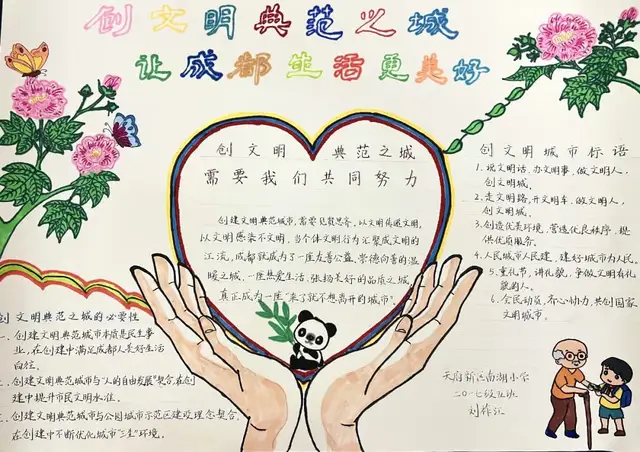 创文明典范之城
让成都生活更美好
创文明典范之城
需要我们共同努力
创建文明典范城市,需要见贤思齐,以文明传递文明,
以文明感染不文明,当个体文明行为汇聚成文明的
江流,成都就成为了一座友善公益、崇德向善的温
暖之城,一座热爱生活、张扬美好的品质之城,
真正成为一座“来了就不想离开的城市”。
创文明城市标语
1.说文明话,办文明事,做文明人,
创文明城。
2.走文明路,开文明车,做文明人,
创文明城。
3.创造优美环境,营造优良秩序,提
供优质服务。
4.人民城市人民建,建好城市为人民。
5.重礼节,讲礼貌,争做文明有礼
貌的人。
6.全民动员,齐心协力,共创国家
文明城市。
创文明典范之城的必要性
一.创建文明典范城市本质是民生事
业,在创建中满足成都人美好生活
向往。
二.创建文明典范城市与“人的自由发展”契合,在创
建中提升市民文明水准。
三.创建文明典范城市与公园城市示范区建设理念契合,
在创建中不断优化城市“三生”环境。
天府新区南湖小学
二〇一七级五班